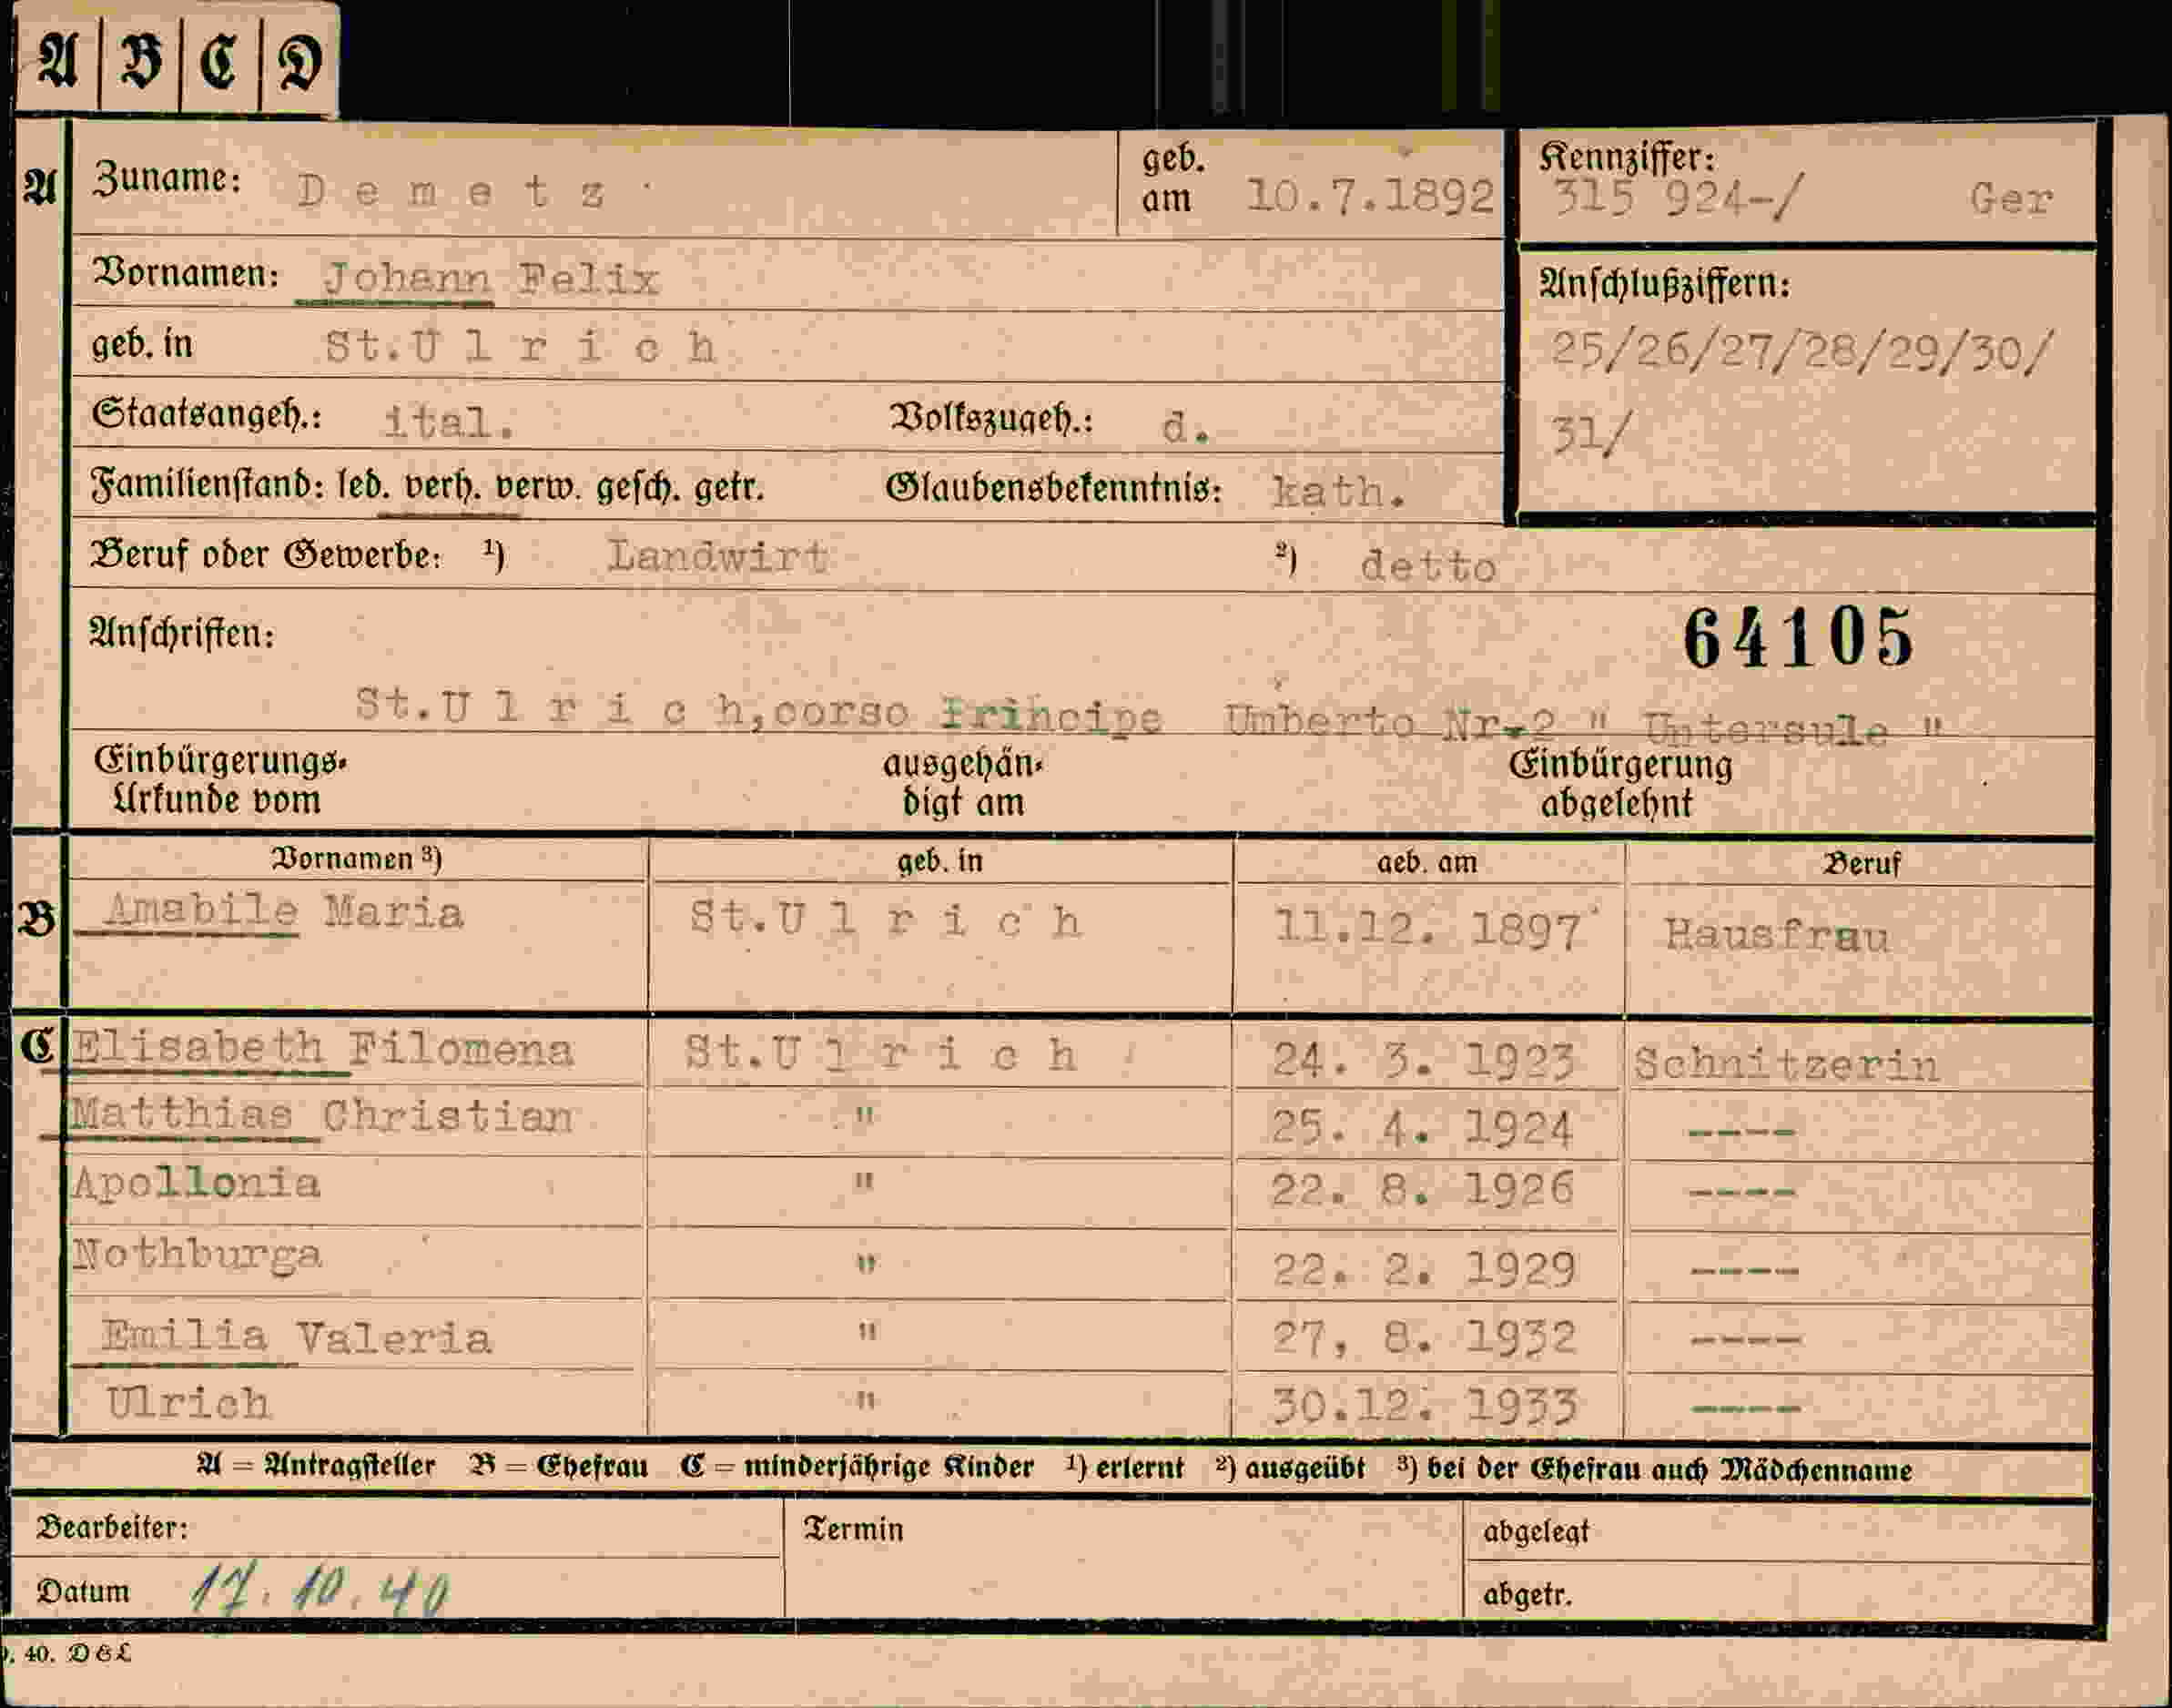 A B C D
A Zuname: Demetz geb. am 10.7.1892 Kennziffer: 315 924-/ Ger
Vornamen: Johann Felix Anschlußziffern:
geb. in St.Ulrich 25/26/27/28/29/30/
Staatsangeh.: ital. Volkszugeh.: d. 31/
Familienstand: led. verh. verw. gesch. getr. Glaubensbekenntnis: kath.
Beruf oder Gewerbe: ¹) Landwirt ²) detto
Anschriften: 64105
St.Ulrich,corso Principe Umberto Nr-2 " Untersule "
Einbürgerungs- ausgehän- Einbürgerung
Urkunde vom digt am abgelehnt
Vornamen ³) geb. in geb. am Beruf
B Amabile Maria St.Ulrich 11.12. 1897 Hausfrau
C Elisabeth Filomena St.Ulrich 24. 3. 1923 Schnitzerin
Matthias Christian " 25. 4. 1924 ----
Apollonia " 22. 8. 1926 ----
Nothburga " 22. 2. 1929 ----
Emilia Valeria " 27, 8. 1932 ----
Ulrich " 30.12. 1933 ----
A = Antragsteller B = Ehefrau C = minderjährige Kinder ¹) erlernt ²) ausgeübt ³) bei der Ehefrau auch Mädchenname
Bearbeiter: Termin abgelegt
Datum 17.10.40 abgetr.
40. D&L